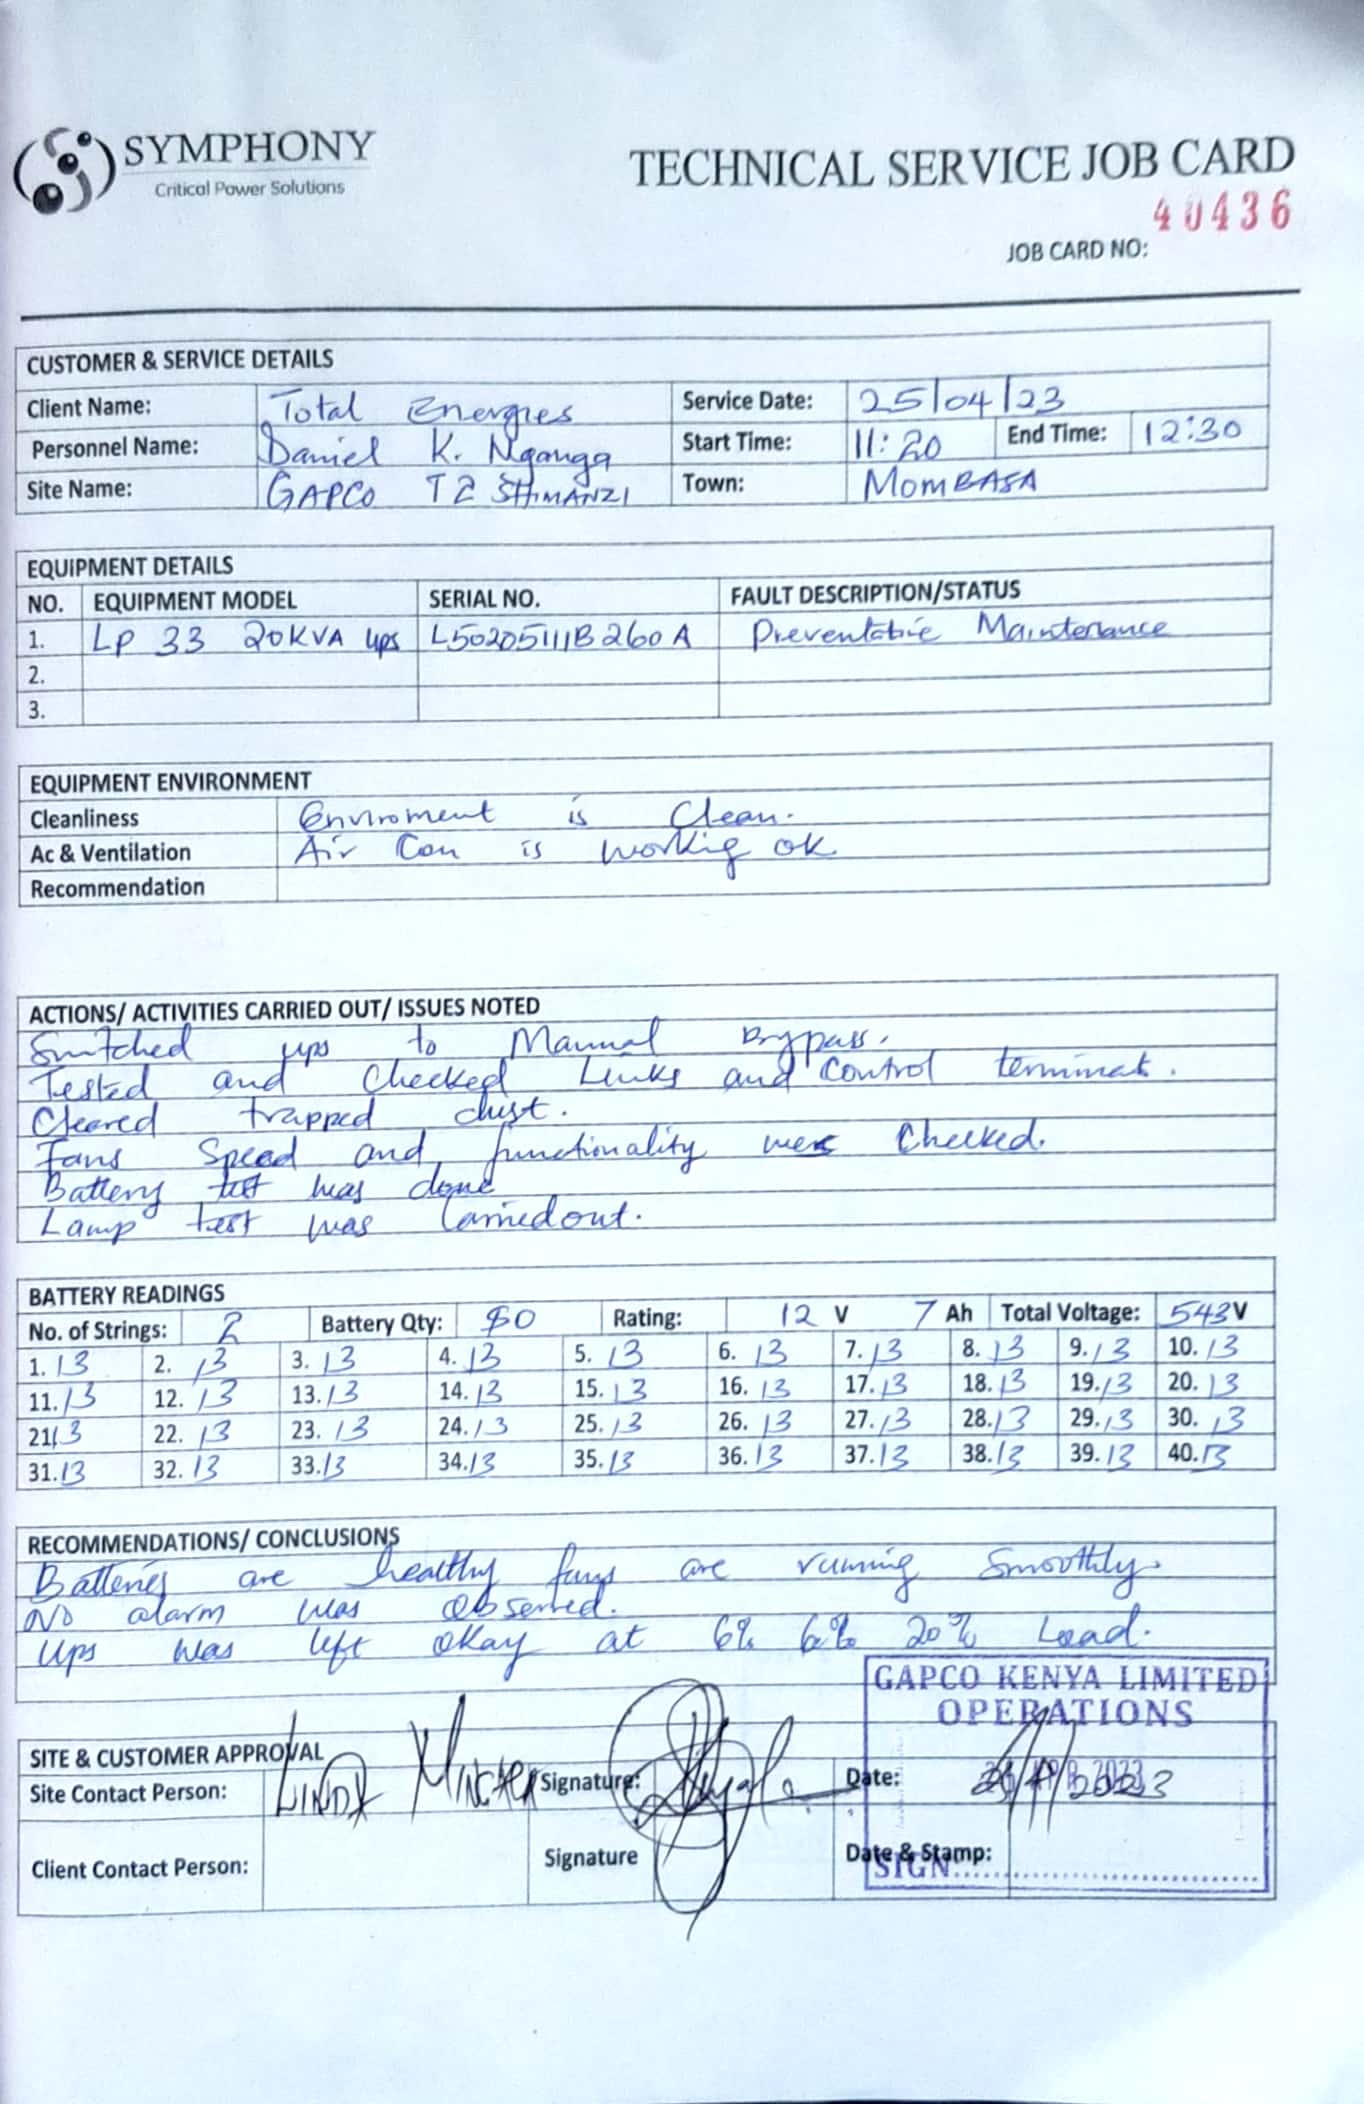 SYMPHONY
Critical Power Solutions
TECHNICAL SERVICE JOB CARD
40436
JOB CARD NO:
CUSTOMER & SERVICE DETAILS
Client Name: Total Energies Service Date: 25/04/23
Personnel Name: Daniel K. Nganga Start Time: 11:20 End Time: 12:30
Site Name: GAPCO T2 SHIMANZI Town: MOMBASA
EQUIPMENT DETAILS
NO. EQUIPMENT MODEL SERIAL NO. FAULT DESCRIPTION/STATUS
1. LP 33 20KVA ups L50205111B260A Preventative Maintenance
2.
3.
EQUIPMENT ENVIRONMENT
Cleanliness Enviroment is Clean.
Ac & Ventilation Air Con is working ok
Recommendation
ACTIONS/ ACTIVITIES CARRIED OUT/ ISSUES NOTED
Switched ups to Manual Bypass.
Tested and Checked Links and control terminals.
Cleared trapped dust.
Fans Speed and functionality were Checked.
Battery test was done
Lamp test was Carried out.
BATTERY READINGS
No. of Strings: 2 Battery Qty: 80 Rating: 12 V 7 Ah Total Voltage: 543V
1. 13 2. 13 3. 13 4. 13 5. 13 6. 13 7. 13 8. 13 9. 13 10. 13
11. 13 12. 13 13. 13 14. 13 15. 13 16. 13 17. 13 18. 13 19. 13 20. 13
21. 13 22. 13 23. 13 24. 13 25. 13 26. 13 27. 13 28. 13 29. 13 30. 13
31. 13 32. 13 33. 13 34. 13 35. 13 36. 13 37. 13 38. 13 39. 13 40. 13
RECOMMENDATIONS/ CONCLUSIONS
Batteries are healthy fans are running Smoothly.
No alarm was observed.
Ups was left okay at 6% 6% 20% Load.
GAPCO KENYA LIMITED
OPERATIONS
SITE & CUSTOMER APPROVAL
Site Contact Person: Signature: Date: 2023
Client Contact Person: Signature Date & Stamp:
SIGN